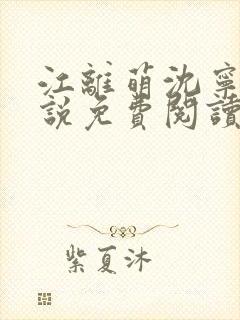 江離萌沈寧
說免費閱讀
紫夏沐